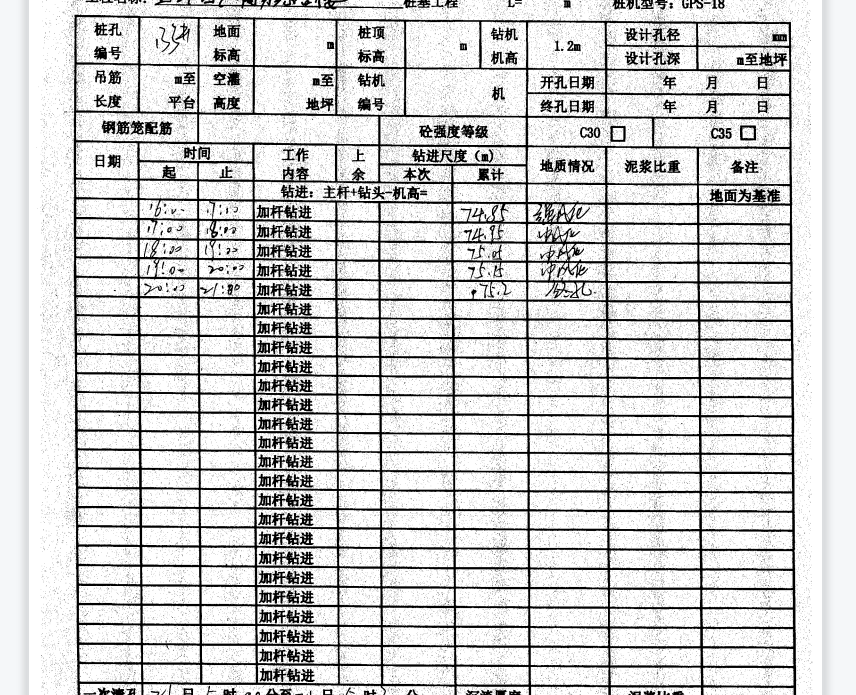 桩基工程 L= m 桩机型号: GPS-18
桩孔编号 133# 地面标高 m 桩顶标高 m 钻机机高 1.2m 设计孔径 mm
设计孔深 m至地坪
吊筋长度 m至平台 空灌高度 m至地坪 钻机编号 机 开孔日期 年 月 日
终孔日期 年 月 日
钢筋笼配筋 砼强度等级 C30 □ C35 □
日期 时间 工作内容 上余 钻进尺度(m) 地质情况 泥浆比重 备注
起 止 本次 累计
钻进: 主杆+钻头-机高= 地面为基准
加杆钻进 74.85
17:00 18:00 加杆钻进 74.95
18:00 19:00 加杆钻进 75.05
19:00 20:00 加杆钻进 75.15
20:00 21:00 加杆钻进 75.2
加杆钻进
加杆钻进
加杆钻进
加杆钻进
加杆钻进
加杆钻进
加杆钻进
加杆钻进
加杆钻进
加杆钻进
加杆钻进
加杆钻进
加杆钻进
加杆钻进
加杆钻进
加杆钻进
加杆钻进
加杆钻进
加杆钻进
加杆钻进